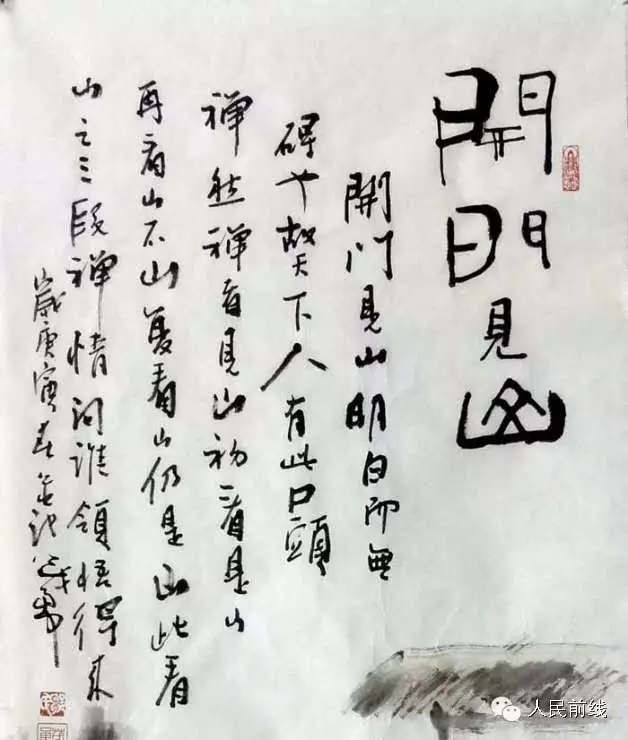 開門見山
開門見山明白而無
碍也故天下人有此口頭
禅然禅者見山初看是山
再看山不山复看山仍是山此看
山之三段禅情问谁領悟得来
歲庚寅春
人民前线